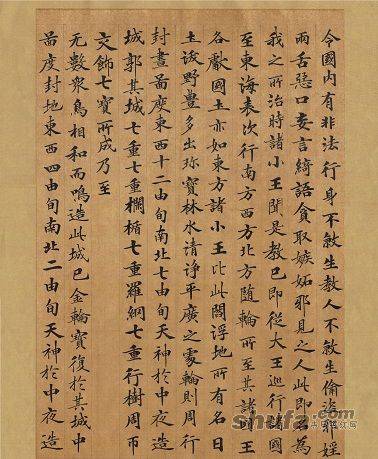 今國內有非法行身不殺生教人不殺生偷盜邪婬
兩舌惡口妄言綺語貪取嫉妬邪見之人此即名為
我之所治時諸小王聞是教已即從大王巡行諸國
至東海表次行南方西方北方隨輪所至其諸國王
各獻國土亦如東方諸小王比此閻浮地所有名曰
土沃野豊多出珎寶林水清淨平廣之處輪則周行
封畫啚度東西十二由旬南北七由旬天神於中夜造
城郭其城七重七重欄楯七重羅網七重行樹周帀
交飾七寶所成乃至
无數衆鳥相和而鳴造此城已金輪寶復於其城中
啚度封地東西四由旬南北二由旬天神於中夜造
shufa.com